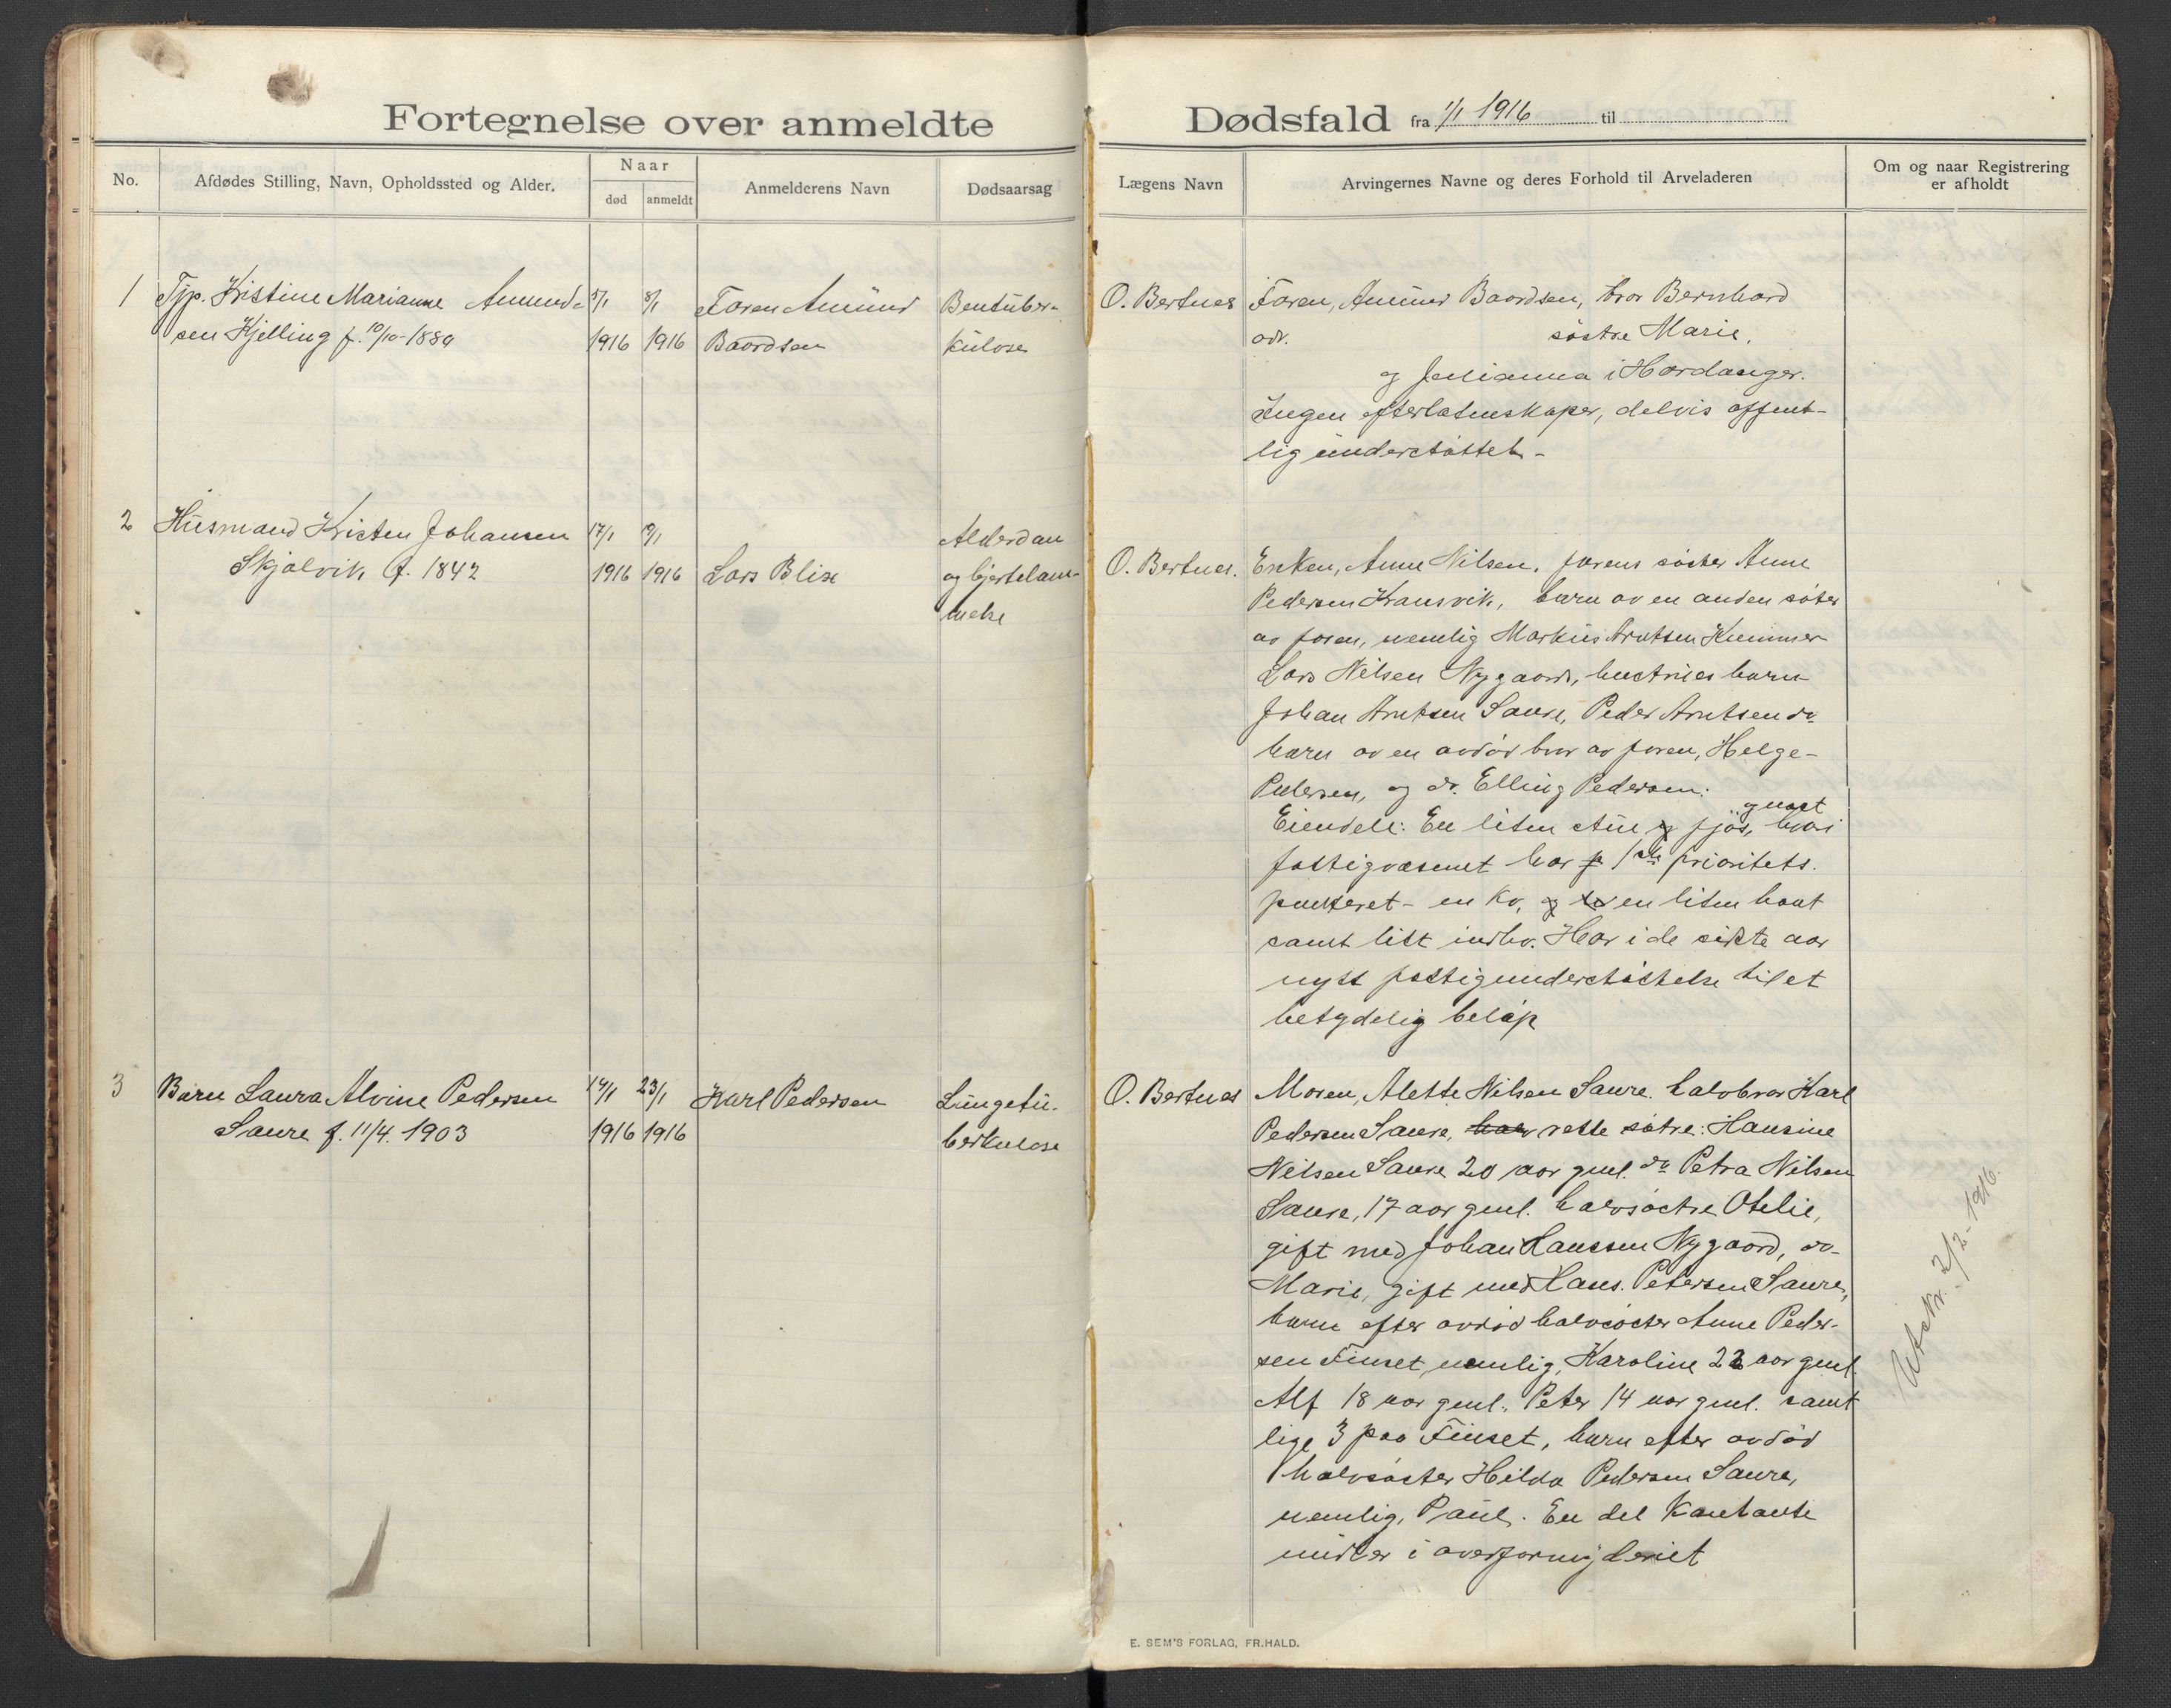 Fortegnelse over anmeldte Dødsfald fra 1/1 1916 til
No.
Afdødes Stilling, Navn, Opholdssted og Alder.
Naar
død
anmeldt
Anmelderens Navn
Dødsaarsag
Lægens Navn
Arvingernes Navne og deres Forhold til Arveladeren
Om og naar Registrering
er afholdt
1
Tjp. Kristine Marianne Amund-
sen Kjelling f. 10/10-1889
5/1
1916
8/1
1916
Faren Amund
Baardsen
Bentuber-
kulose
O. Bertnes
Faren, Amund Baardsen, bror Bernhard
do. søstre Marie,
og Julianna i Hardanger.
Ingen efterlatenskaper, delvis offent-
lig understøttet -
2
Husmand Kristen Johansen
Skjælvik f. 1842
17/1
1916
19/1
1916
Lars Blix
Alderdom
og hjertelam-
melse
O. Bertnes.
Enken, Anne Nilsen, farens søster Anne
Pedersen Kransvik, barn av en anden søster
av faren, nemlig Markus Arntsen
Lars Nilsen Nygaard, hustrues barn
Johan Arntsen Saure, Peder Arntsen do
barn av en avdød bror av faren, Helge-
Pedersen, og do. Elling Pedersen.
Eiendele: En liten stue og fjøs, hvori
og naust
fattigvæsenet har p 1ste prioritets.
panteret - en ko, og en liten baat
samt litt indbo. Har i de sidste aar
nytt fattigunderstøttelse til et
betydelig beløp
3
Barn Laura Alvine Pedersen
Saure f. 11/4. 1903
19/1
1916
23/1
1916
Karl Pedersen
Lungetu-
berkulose
O. Bertnes
Moren, Alette Nilsen Saure. halvbror Karl
Pedersen Saure, halv rette søstre: Hansine
Nilsen Saure 20 aar gml. do Petra Nilsen
Saure, 17 aar gml. halvsøstre Otelie,
gift med Johan Hanssen Nygaard, do-
Marie, gift med Hans. Petersen Saure,
barn efter avdød halvsøster Anne Peder-
sen Finset, nemlig, Karoline 22 aar gml.
Alf 18 aar gml., Peter 14 aar gml. samt
lige 3 paa Finset, barn efter avdød
halvsøster Hilda Pedersen Saure,
nemlig, Paul. En del kontante
midler i overformynderiet
Utskr. 2/2-1916.
E. SEM'S FORLAG, FR.HALD.